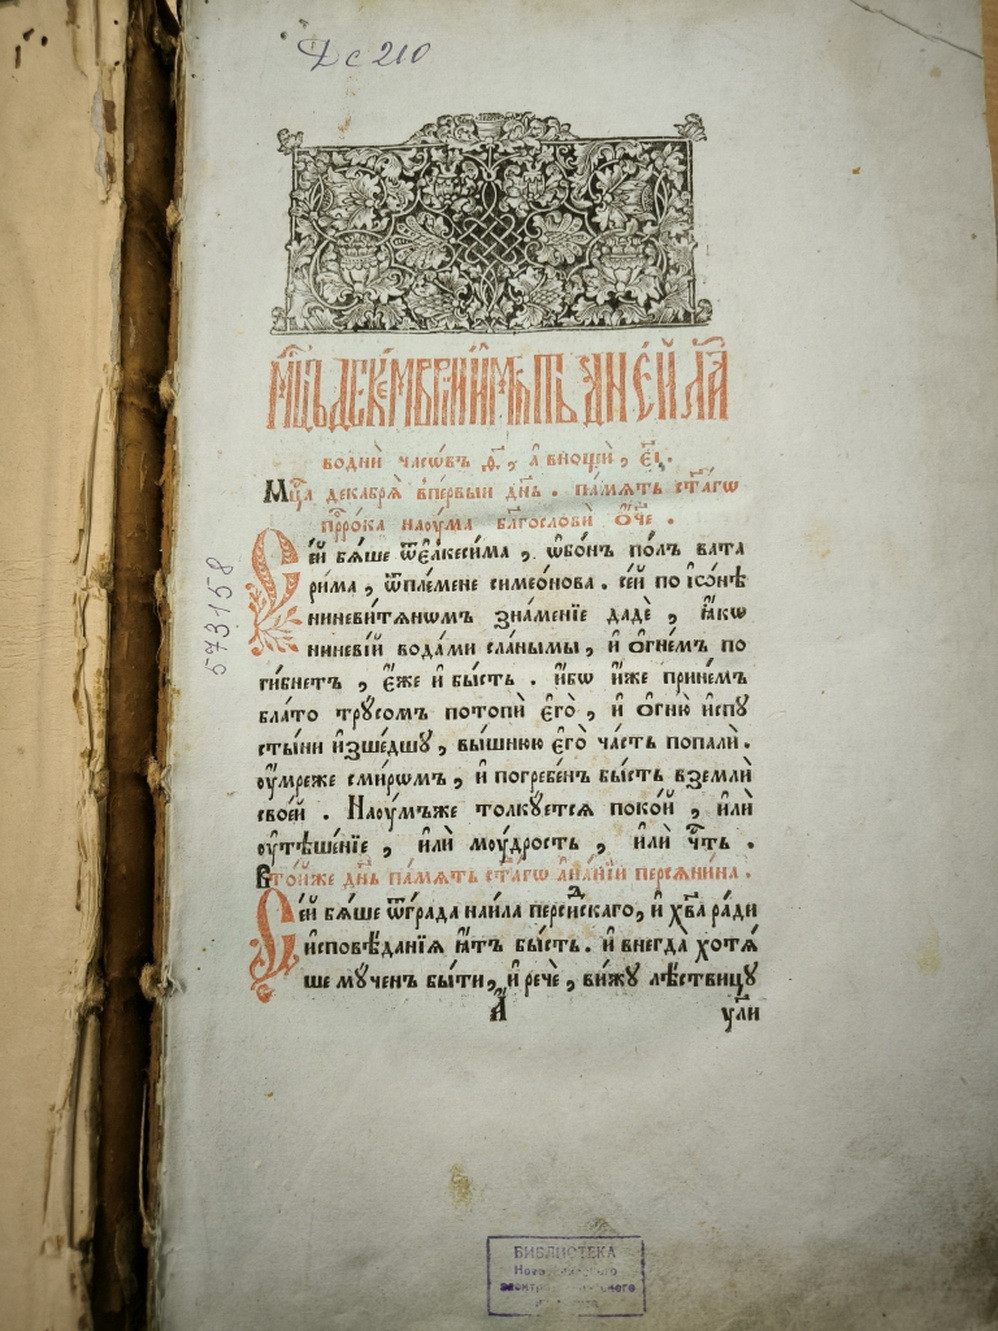 Дс 210
мⷭ҇цъ декемврїй и҆мѣетъ дн҃ей л҃а
воднѝ часѡ́въ ѳ҃, а҆ внощѝ, є҃і.
Мцⷭ҇а декабрѧ̀ впе́рвыи дн҃ь. па́мѧть ст҃а́гѡ
прⷪ҇ро́ка наѹ́ма бл҃гословѝ ѻ҆́ч҃е.
Се́й бѧ́ше ѿє҆лкеси́ма, ѡ҆бо́нъ по́лъ вата
ри́ма, ѿпле́мене симео́нова. се́й по і҆ѡ́нѣ
ниневи́тѧнѡмъ зна́менїе дадѐ, ꙗ҆́кѡ
ниневі́й вода́ми сла́ными, и҆ ѻ҆гне́мъ по
ги́бнетъ, є҆́же и҆ бы́сть. и҆́бѡ и҆́же прине́мъ
бла́то трꙋ́сомъ потопѝ є҆го̀, и҆ ѻ҆гню̀ и҆спꙋ
сты́ни и҆зше́дшꙋ, вы́шнюю є҆го̀ ча́сть попалѝ.
ѹ҆́мреже сми́рѡмъ, и҆ погребе́нъ бы́сть вземлѝ
свое́й. Наѹ́мъже толкꙋ́етсѧ поко́й, и҆лѝ
ѹ҆тѣше́нїе, и҆лѝ моу́дрость, и҆лѝ чⷭ҇ть.
Вто́йже дн҃ь па́мѧть ст҃а́гѡ а҆на́нїи персѧни́на.
Се́й бѧ́ше ѿгра́да наи́ла перси́дскаго, и҆ хрⷭ҇та̀ ра́ди
и҆сповѣ́данїѧ ꙗ҆́тъ бы́сть. и҆ внегда̀ хотѧ́
ше мꙋ́ченъ бы́ти, и҆ речѐ, ви́жꙋ лѣ́ствицꙋ
а҃
ꙋли
573158
БИБЛИОТЕКА